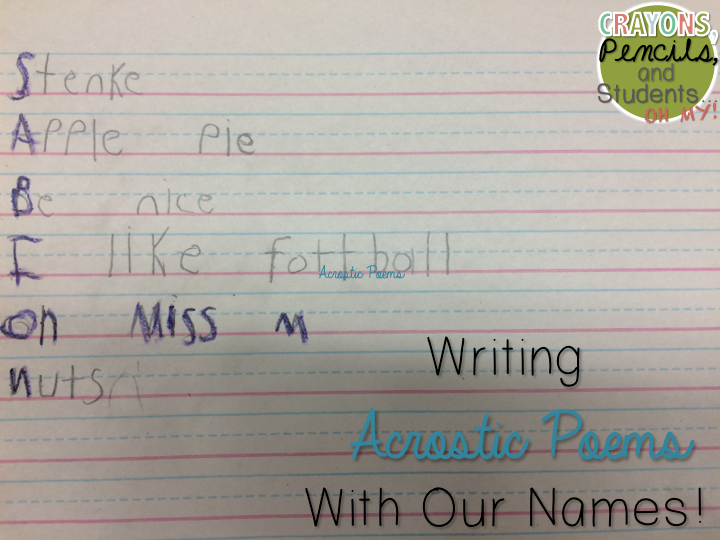 CRAYONS,
Pencils,
and
Students...
OH MY!
Stenke
APPle Pie
Be nice
I like fottball
Acrostic Poems
on Miss M
nuts
Writing
Acrostic Poems
With Our Names!